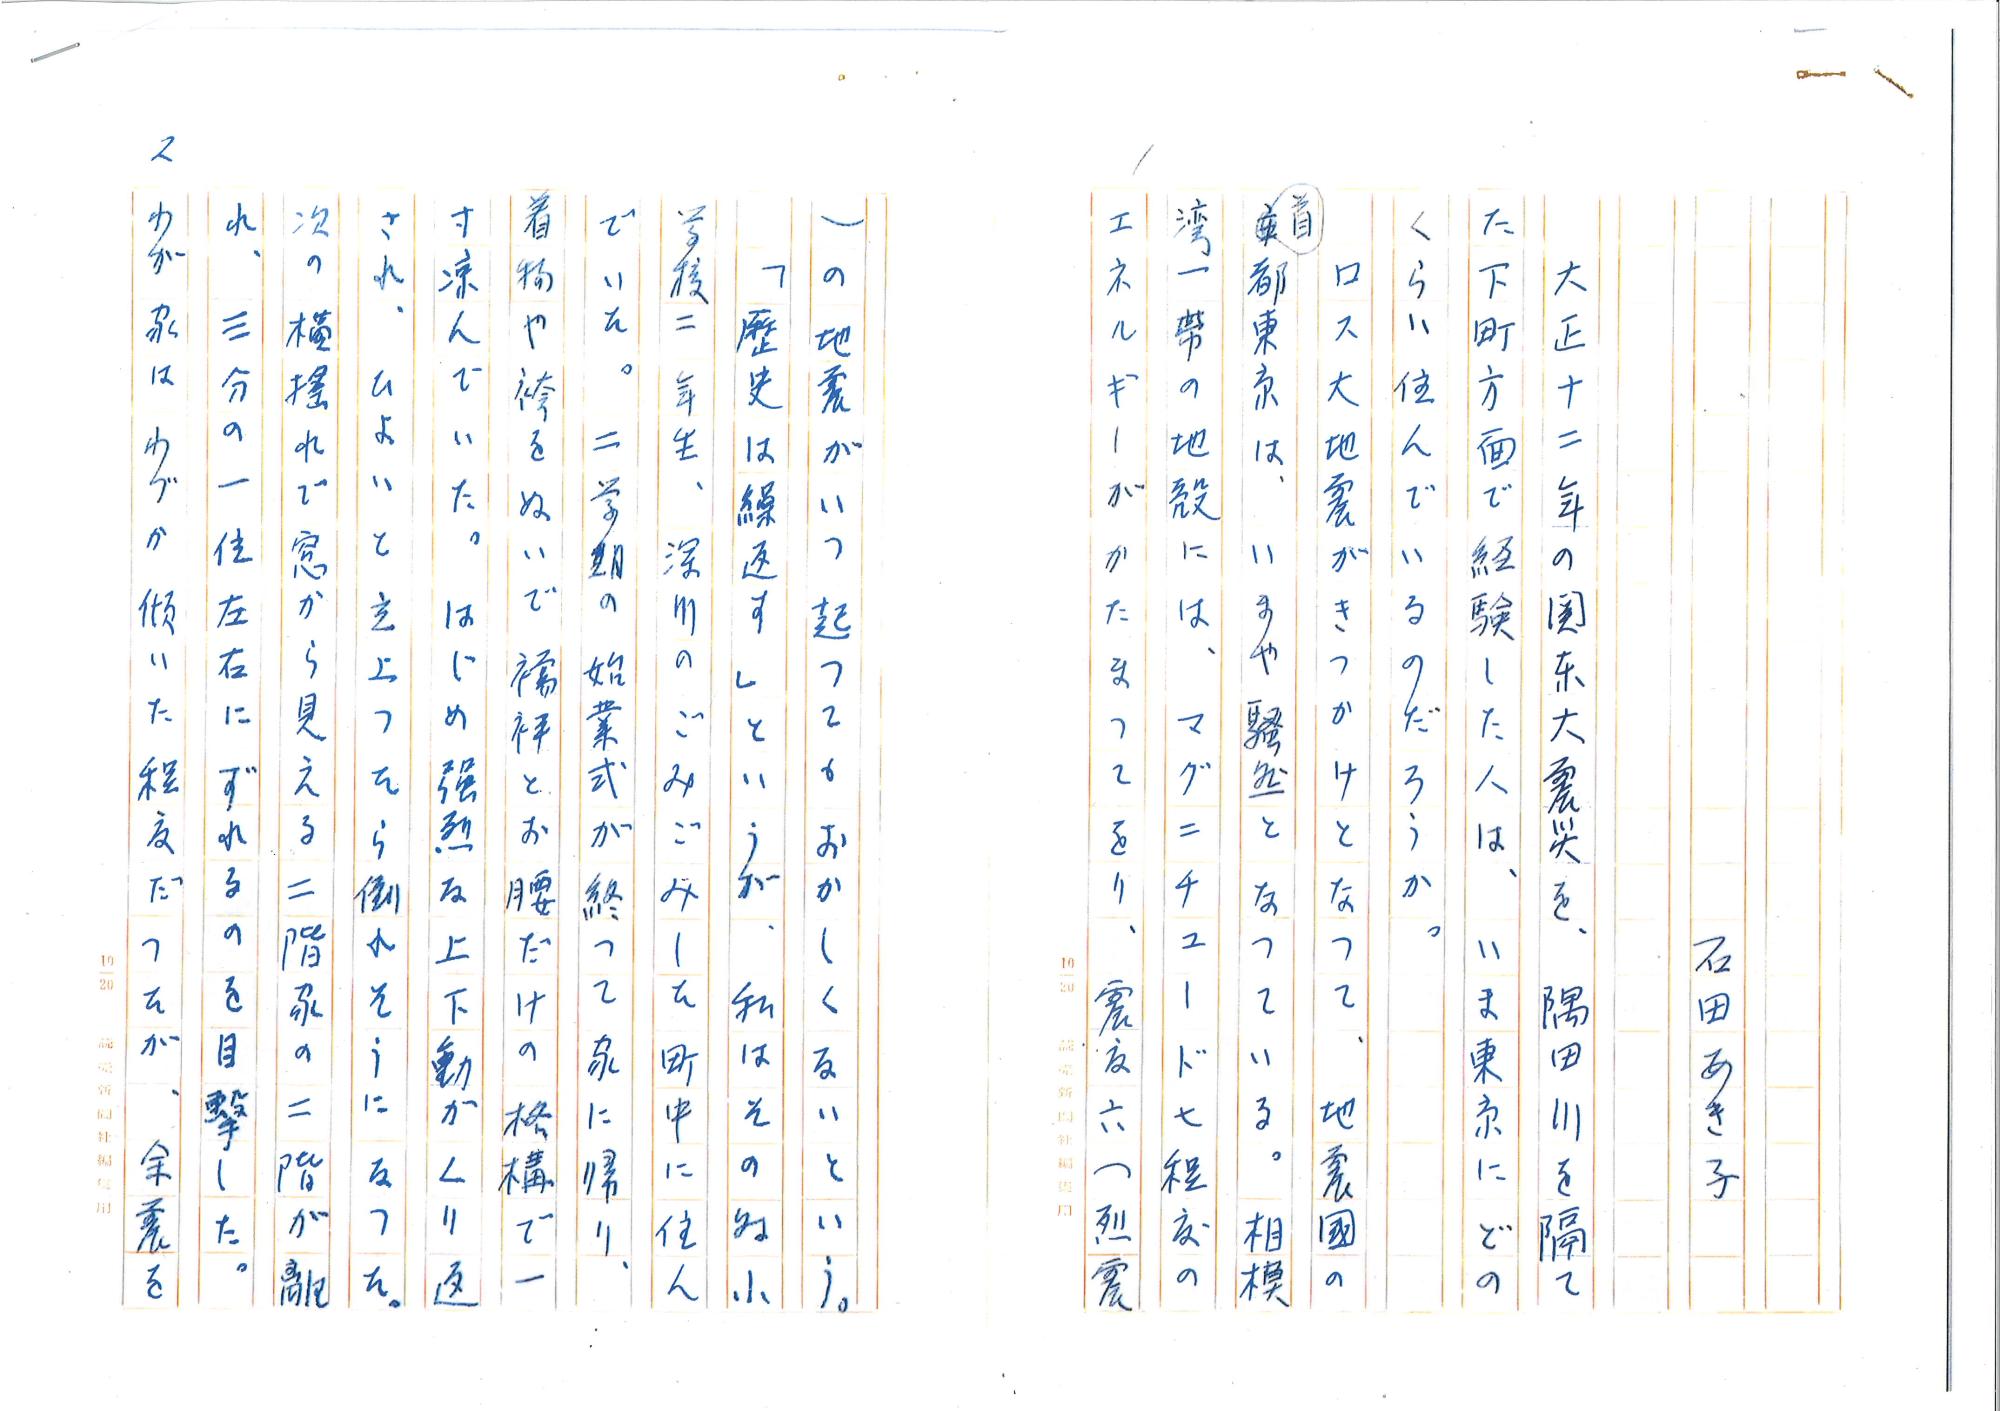 石田あき子
大正十二年の関东大震災を、隅田川を隔て
た下町方面で経験した人は、いま東京にどの
くらい住んでいるのだろうか。
ロス大地震がきつかけとなつて、地震國の
首都東京は、いまや騒然となつている。相模
湾一帶の地殻には、マグニチユード七程度の
エネルギーがかたまつてをり、震度六(烈震
1
10/20 読売新聞社編集用
)の地震がいつ起つてもおかしくないという。
「歷史は繰返す」というが、私はその知小
学校二年生、深川のごみごみした町中に住ん
でいた。二学期の始業式が終つて家に帰り、
着物や袴をぬいで襦袢とお腰だけの格構で一
寸涼んでいた。はじめ强烈な上下動がくり返
され、ひよいと立上つたら倒れそうになつた。
次の横揺れで窓から見える二階家の二階が離
れ、三分の一位左右にずれるのを目撃した。
わが家はわづか傾いた程度だつたが、余震を
2
10/20 読売新聞社編集用